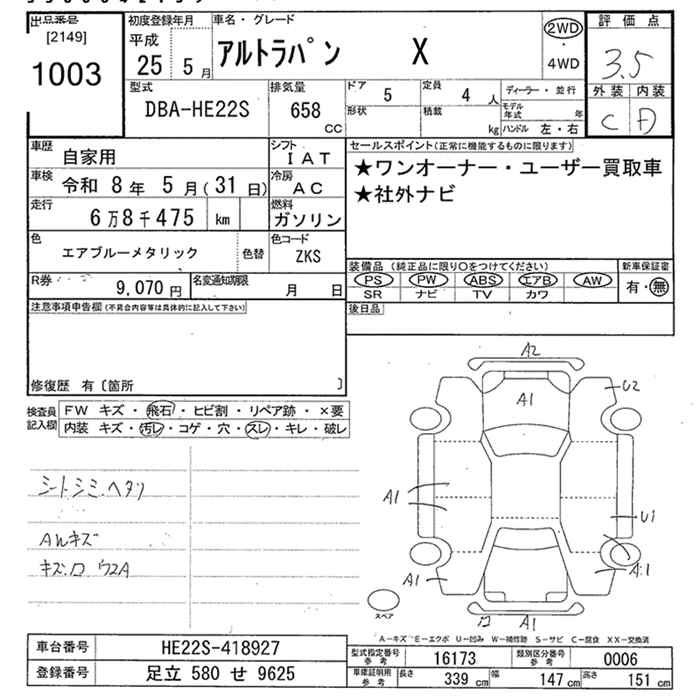 出品番号
[2149]
1003
初度登録年月
平成
25 5 月
車名・グレード
アルトラパン X
2WD
・
4WD
評価点
3.5
外装 内装
C D
型式
DBA-HE22S
排気量
658
CC
ドア 5
定員 4 人
形状
積載 kg
ディーラー・並行
モデル年式 年
ハンドル 左・右
車歴
自家用
シフト
IAT
車検
令和 8年 5月(31日)
冷房
AC
走行
6万8千475 km
燃料
ガソリン
色
エアブルーメタリック
色替
色コード
ZKS
R券
9,070 円
名変通知期限
月 日
セールスポイント(正常に機能するものに限ります)
★ワンオーナー・ユーザー買取車
★社外ナビ
装備品(純正品に限り○をつけてください)
PS PW ABS エアB AW
SR ナビ TV カワ
新車保証書
有・無
後日品
注意事項申告欄(不具合内容等は具体的に記入して下さい)
修復歴 有〔箇所 〕
検査員
記入欄
FW キズ・飛石・ヒビ割・リペア跡・×要
内装 キズ・汚レ・コゲ・穴・スレ・キレ・破レ
シートシミ.ヘタリ
AWキズ
A2
A1
U2
A1
U1
A1
A1
A1
スペア
A－キズ E－エクボ U－凹み W－補修跡 S－サビ C－腐食 XX－交換済
車台番号
HE22S-418927
登録番号
足立 580 せ 9625
型式指定番号
参考
16173
類別区分番号
参考
0006
車庫証明用
参考
長さ 339 cm
幅 147 cm
高さ 151 cm